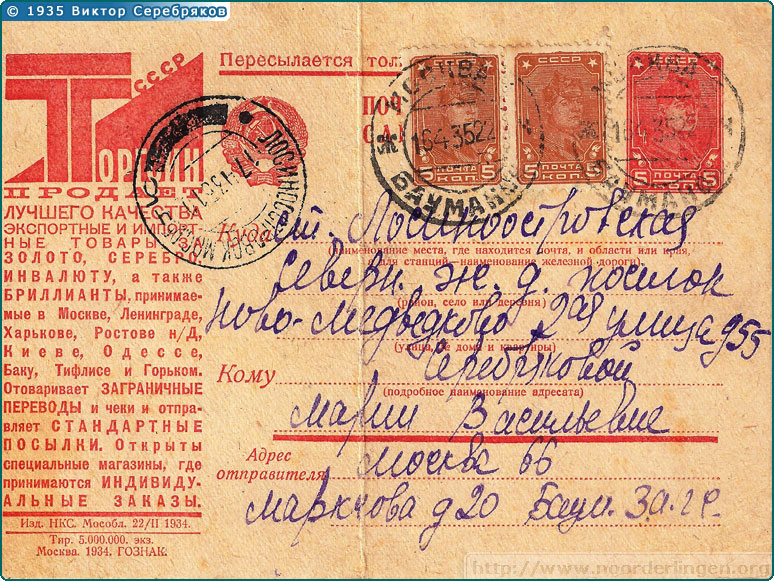 © 1935 Виктор Серебряков
СССР
Торгсин
ПРОДАЕТ
ЛУЧШЕГО КАЧЕСТВА
ЭКСПОРТНЫЕ И ИМПОРТ-
НЫЕ ТОВАРЫ
ЗОЛОТО, СЕРЕБРО
ИНВАЛЮТУ, а также
БРИЛЛИАНТЫ, принимае-
мые в Москве, Ленинграде,
Харькове, Ростове н/Д,
Киеве, Одессе,
Баку, Тифлисе и Горьком.
Отоваривает ЗАГРАНИЧНЫЕ
ПЕРЕВОДЫ и чеки и отпра-
вляет СТАНДАРТНЫЕ
ПОСЫЛКИ. Открыты
специальные магазины, где
принимаются ИНДИВИДУ-
АЛЬНЫЕ ЗАКАЗЫ.
Изд. НКС. Мособл. 22/II 1934.
Тир. 5.000.000. экз.
Москва. 1934. ГОЗНАК.
Пересылается тол
ПОЧ
СССР
5 ПОЧТА КОП. 5
СССР
5 ПОЧТА КОП. 5
5 ПОЧТА КОП. 5
МОСКВА
1643522
БАУМАНС
МОСКВА
1643522
БАУМАНС
Куда
ст. Лосиноостровская
(наименование места, где находится почта, и области или края,
для станций—наименование железной дороги)
Северн. ж. д. поселок
(район, село или деревня)
Ново-Медведково 2ая улица д55
(улица, № дома и квартиры)
Кому
Серебряковой
(подробное наименование адресата)
Марии Васильевне
Адрес
отправителя
Москва 66
д 20
http://www.noorderlingen.org